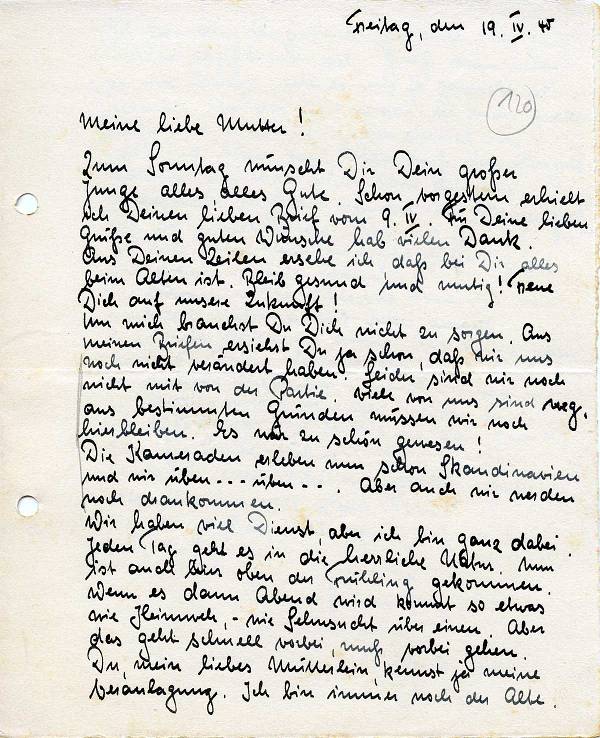 Freitag, den 19. IV. 45
120
Meine liebe Mutter!
Zum Sonntag wünscht Dir Dein großer
Junge alles alles Gute. Schon vorgestern erhielt
ich Deinen lieben Brief vom 9. IV. Für Deine lieben
Grüße und guten Wünsche hab vielen Dank.
Aus Deinen Zeilen ersehe ich daß bei Dir alles
beim Alten ist. Bleib gesund und mutig! Freue
Dich auf unsere Zukunft!
Um mich brauchst Du Dich nicht zu sorgen. Aus
meinen Briefen ersiehst Du ja schon, daß wir uns
noch nicht verändert haben. Leider sind wir noch
nicht mit von der Partie. Viele von uns sind weg,
aus bestimmten Gründen müssen wir noch
hierbleiben. Es wär zu schön gewesen!
Die Kameraden erleben nun schon Skandinavien
und wir üben --- üben --. Aber auch wir werden
noch drankommen.
Wir haben viel Dienst, aber ich bin ganz dabei.
Jeden Tag geht es in die herrliche Natur. Nun
ist auch hier oben der Frühling gekommen.
Wenn es dann Abend wird kommt so etwas
wie Heimweh, - wie Sehnsucht über einen. Aber
das geht schnell vorbei, muß vorbei gehen.
Du, mein liebes Mütterlein, kennst ja meine
Veranlagung. Ich bin immer noch der Alte.